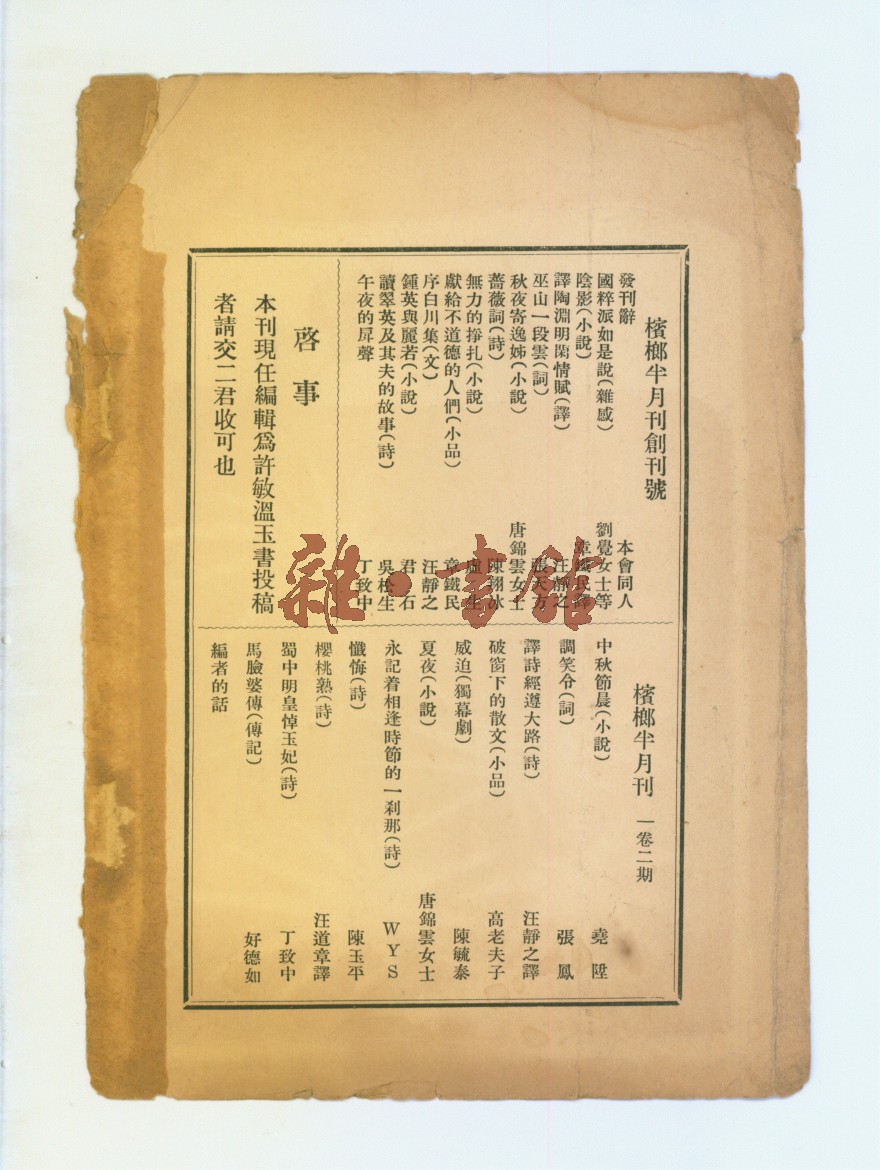 檳榔半月刊創刊號
發刊辭 本會同人
國粹派如是說(雜感) 劉覺女士等
陰影(小說) 章鐵民譯
譯陶淵明閑情賦(譯) 汪靜之
巫山一段雲(詞) 張天方
秋夜寄逸姊(小說) 唐錦雲女士
薔薇詞(詩) 陳翔冰
無力的掙扎(小說) 盧生
獻給不道德的人們(小品) 章鐵民
序白川集(文) 汪靜之
鍾英與麗若(小說) 君石
讀翠英及其夫的故事(詩) 吳松生
午夜的戽聲 丁致中
啓事
本刊現任編輯爲許敏溫玉書投稿
者請交二君收可也
檳榔半月刊 一卷二期
中秋節晨(小說) 堯陞
調笑令(詞) 張鳳
譯詩經遵大路(詩) 汪靜之譯
破窗下的散文(小品) 高老夫子
威迫(獨幕劇) 陳毓泰
夏夜(小說) 唐錦雲女士
永記着相逢時節的一刹那(詩) WYS
懺悔(詩) 陳玉平
櫻桃熟(詩) 汪道章譯
蜀中明皇悼玉妃(詩) 丁致中
馬臉婆傳(傳記) 好德如
編者的話
雜·書館